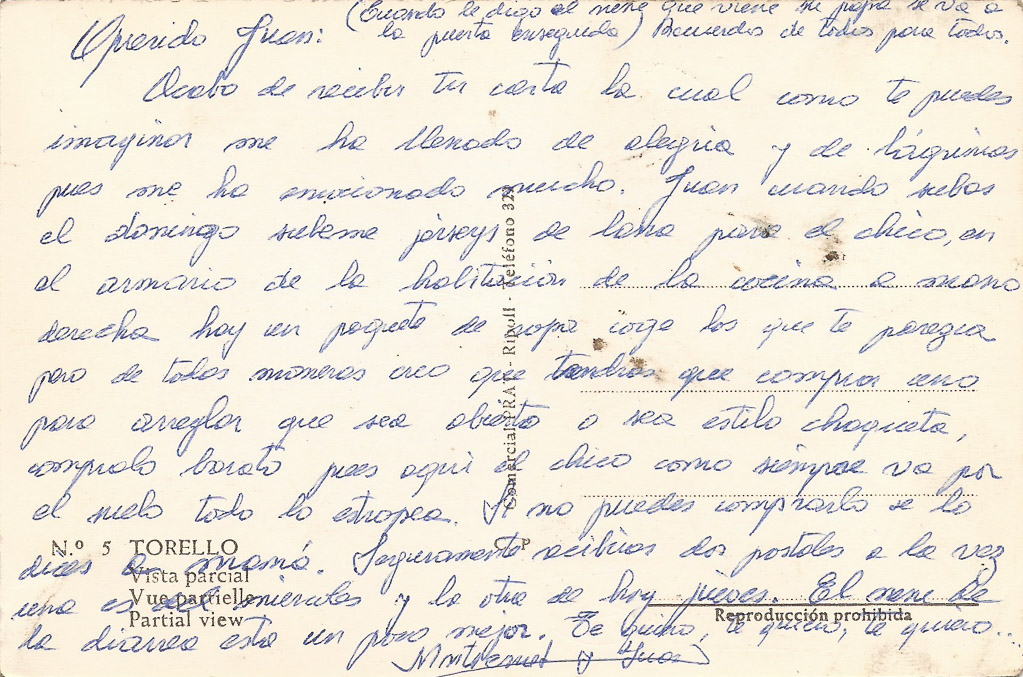 (Cuando le digo al nene que viene su papa se va a
la puerta enseguida) Recuerdos de todos para todos.
Querido Juan:
Acabo de recibir tu carta la cual como te puedes
imaginar me ha llenado de alegria y de lágrimas
pues me ha emocionado mucho. Juan cuando subas
el domingo subeme jerseys de lana para el chico, en
el armario de la habitación de la cocina a mano
derecha hay un paquete de ropa coge los que te parezca
pero de todas maneras creo que tendrás que comprar uno
para arreglar que sea abierto o sea estilo chaqueta,
compralo barato pues aqui el chico como siempre va por
el suelo todo lo estropea. Si no puedes comprarlo se lo
dices a mamá. Seguramente recibiras dos postales a la vez
una es del miercoles y la otra de hoy jueves. El nene de
la diarrea esta un poco mejor. Te quiero, te quiero, te quiero...
Montserrat y Juan
Comercial PRAT - Ripoll - Teléfono 329
N.º 5 TORELLO
Vista parcial
Vue partielle
Partial view
C P
Reproducción prohibida